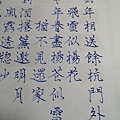 年相送餘杭門外
飛雪似揚花
年春盡揚花似雪
不見還家
捲簾邀明月
風露透